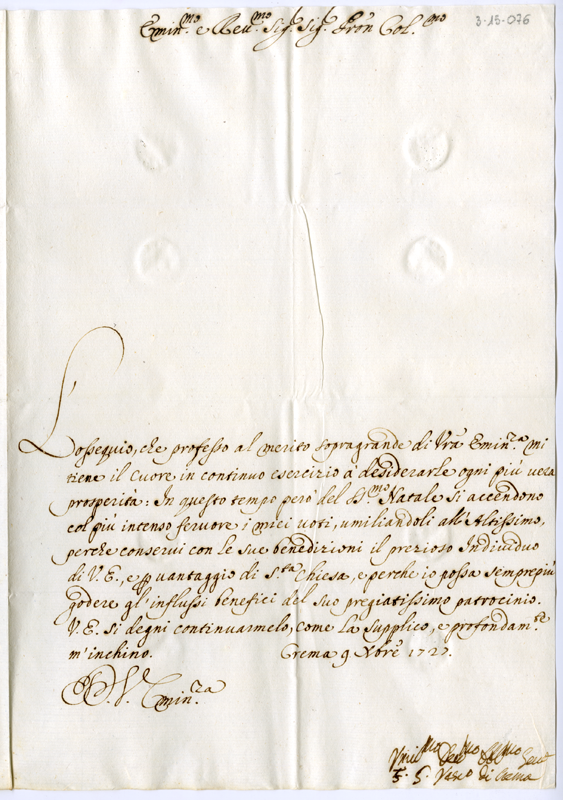 3-15-076
Emin.mo e Reu.mo Sig.r Sig.r Pron Col.mo
L'ossequio, che professo al merito sopragrande di Vrã Emin.za mi
tiene il Cuore in continuo esercizio à desiderarle ogni più vera
prosperità: In questo tempo però del S.mo Natale si accendono
col più intenso feruore i miei uoti, umiliandoli all'Altissimo,
perche conserui con le Sue benedizioni il prezioso Indiuiduo
di V. E., e p uantaggio di S.ta Chiesa, e perche io possa semprepiù
godere gl'influssi benefici del suo pregiatissimo patrocinio.
V. E. si degni continuarmelo, come La supplico, e profondam.te
m'inchino. Crema 9 Xbre 1727.
D. V. Emin.za
Vmil.mo Deu.mo
F. Vesc.o di Crema